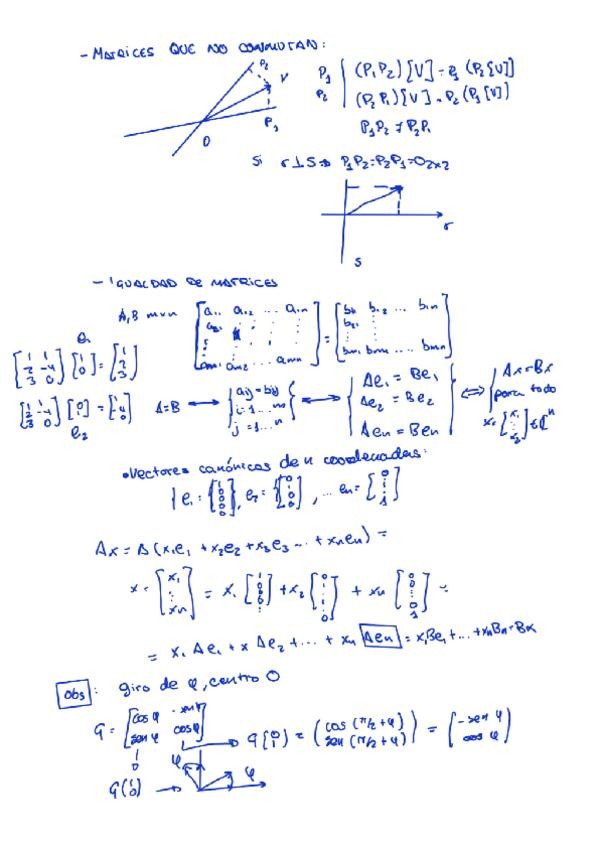 - MATRICES QUE NO CONMUTAN:
P2 V P1 O
P1 | (P1P2)[V] = P1(P2[V])
P2 | (P2P1)[V] = P2(P1[V])
P1P2 ≠ P2P1
Si r⊥S ⇒ P1P2=P2P1=O2x2
r
s
- IGUALDAD DE MATRICES
A,B mxn [a11 a12 ... a1n] = [b11 b12 ... b1n]
a21 b21
am1 am2 ... amn bm1 bm2 .... bmn
e1
[1 1; 2 -4; 3 0] [1; 0] = [1; 2; 3]
[1 1; 2 -4; 3 0] [0; 1] = [1; -4; 0]
e2
A=B ⟷ { aij = bij i=1...m j=1...n } ⟷ { Ae1 = Be1 Ae2 = Be2 Aen = Ben } ⟺ { Ax=Bx para todo x=[x1 : xn] ∈ ℂ^n
• Vectores canónicos de n coordenadas:
| e1 = [1 0 0 0], e2 = [0 1 0 0], ... en = [0 0 : 1]
Ax = A(x1e1 + x2e2 + x3e3 ... + xnen) =
x = [x1 : xn] = x1 [1 0 0 : 0] + x2 [0 1 : 0] + xn [0 0 : 0 1] =
= x1 Ae1 + x Ae2 + ... + xn Aen = x1Be1 + ... + xnBn = Bx
Obs: giro de φ, centro O
G = [cos φ -sen φ; sen φ cos φ]
→ G[0 1] = (cos (π/2 + φ) sen (π/2 + φ)) = [-sen φ cos φ]
G(1 0) → φ φ